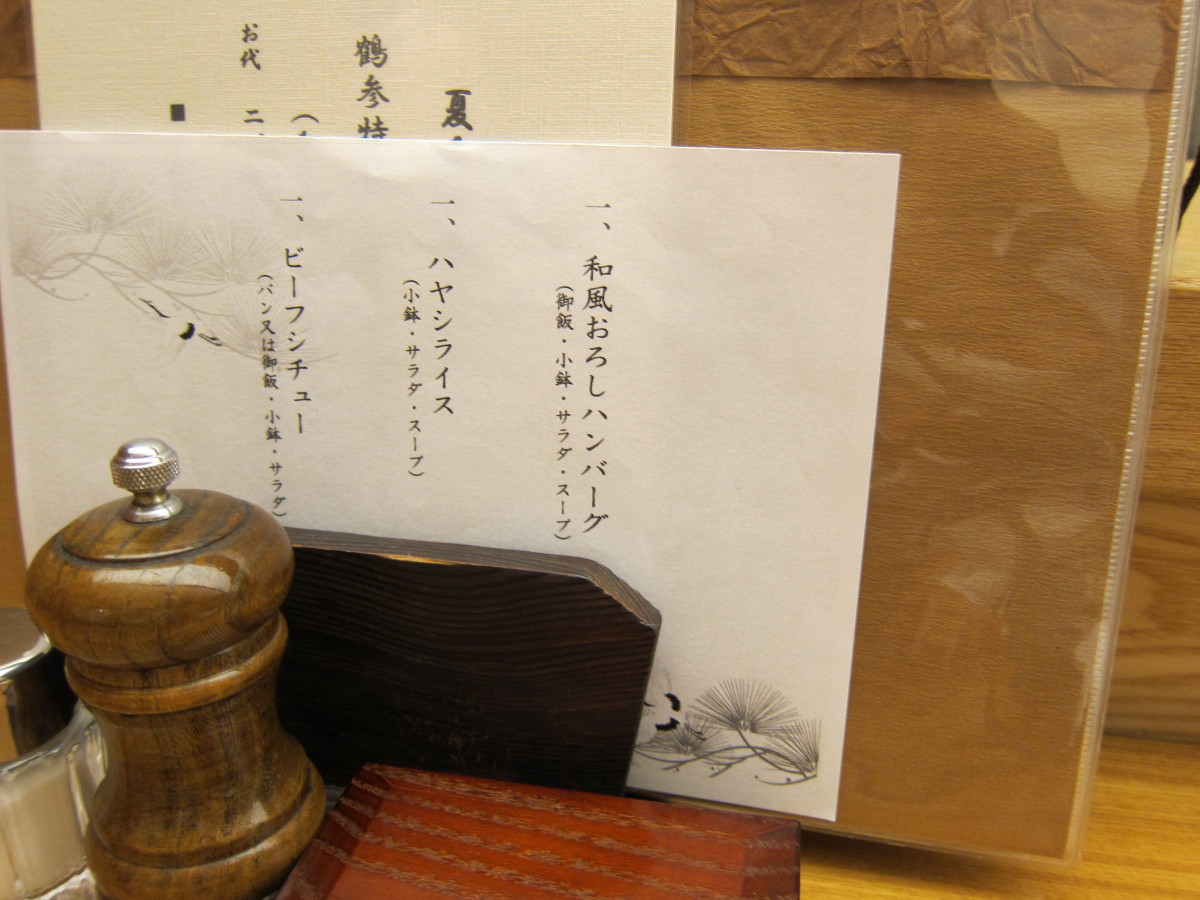 夏
鶴参特
お代 二、
■
一、和風おろしハンバーグ
（御飯・小鉢・サラダ・スープ）
一、ハヤシライス
（小鉢・サラダ・スープ）
一、ビーフシチュー
（パン又は御飯・小鉢・サラダ）